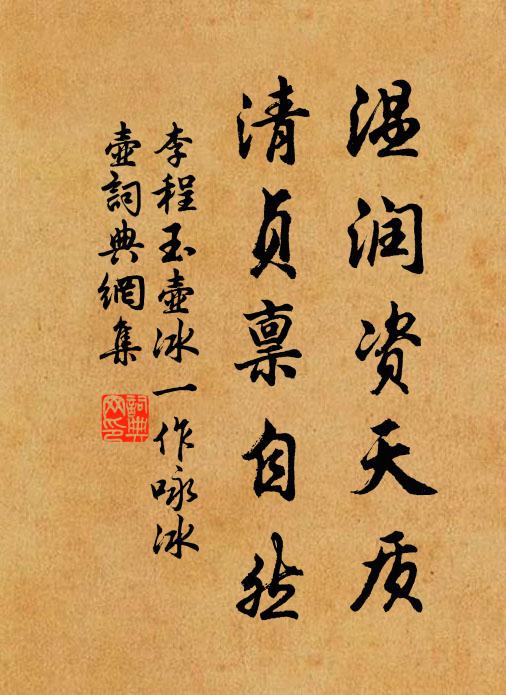 温润资天质
清贞禀自然
李程玉壶冰一作咏冰
壶詞典網集
詞典网印